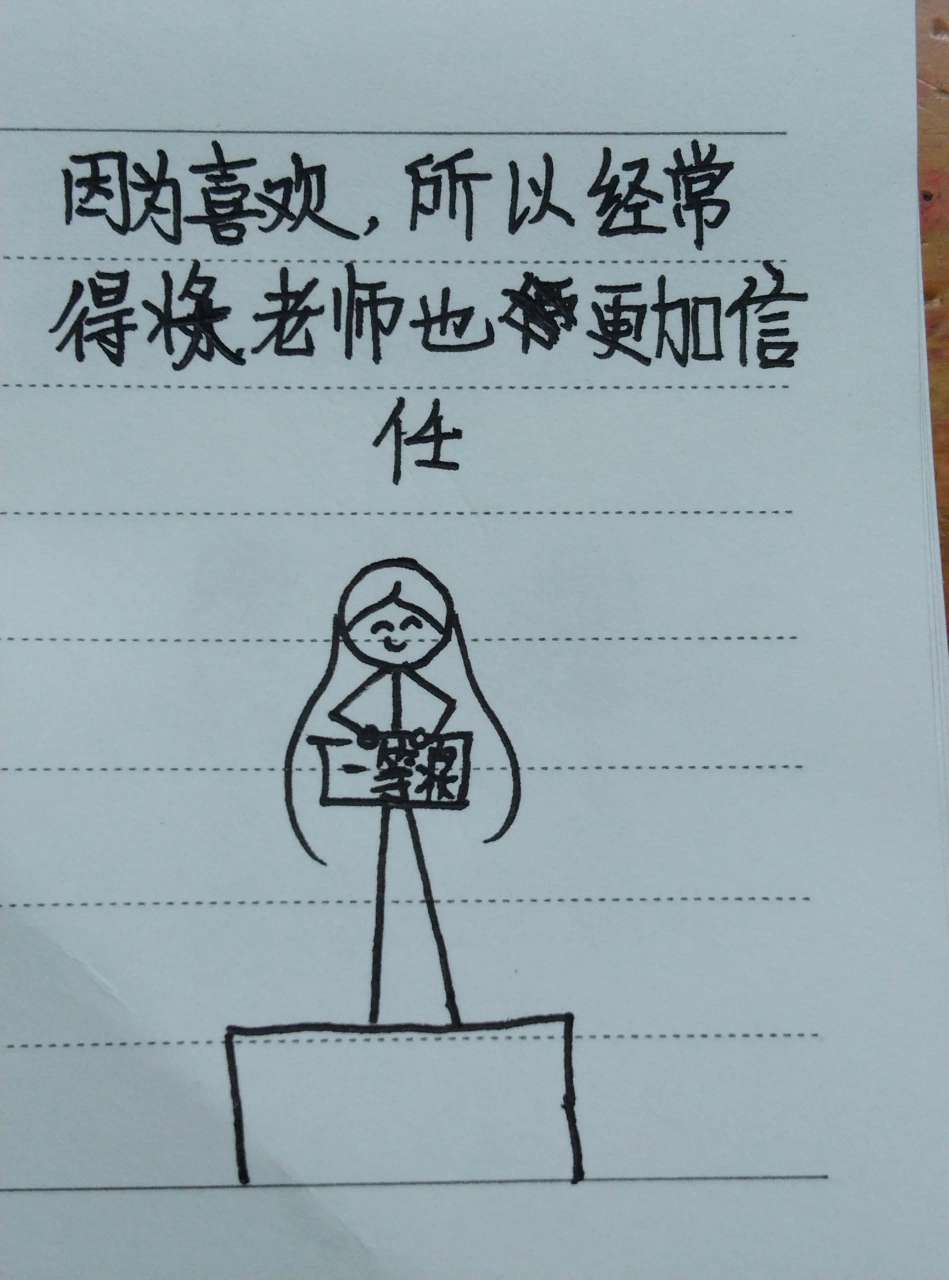 因为喜欢，所以经常
得奖老师也更加信
任
一等奖